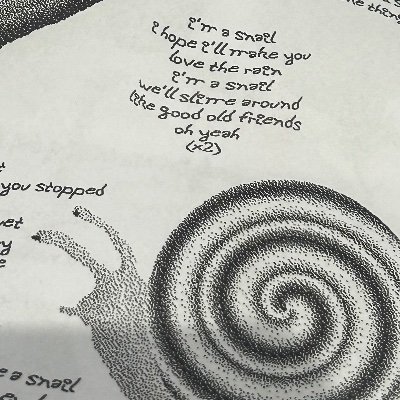 the thin
i'm a snail
i hope i'll make you
love the rain
i'm a snail
we'll slime around
like good old friends
oh yeah
(x2)
you stopped
e a snail